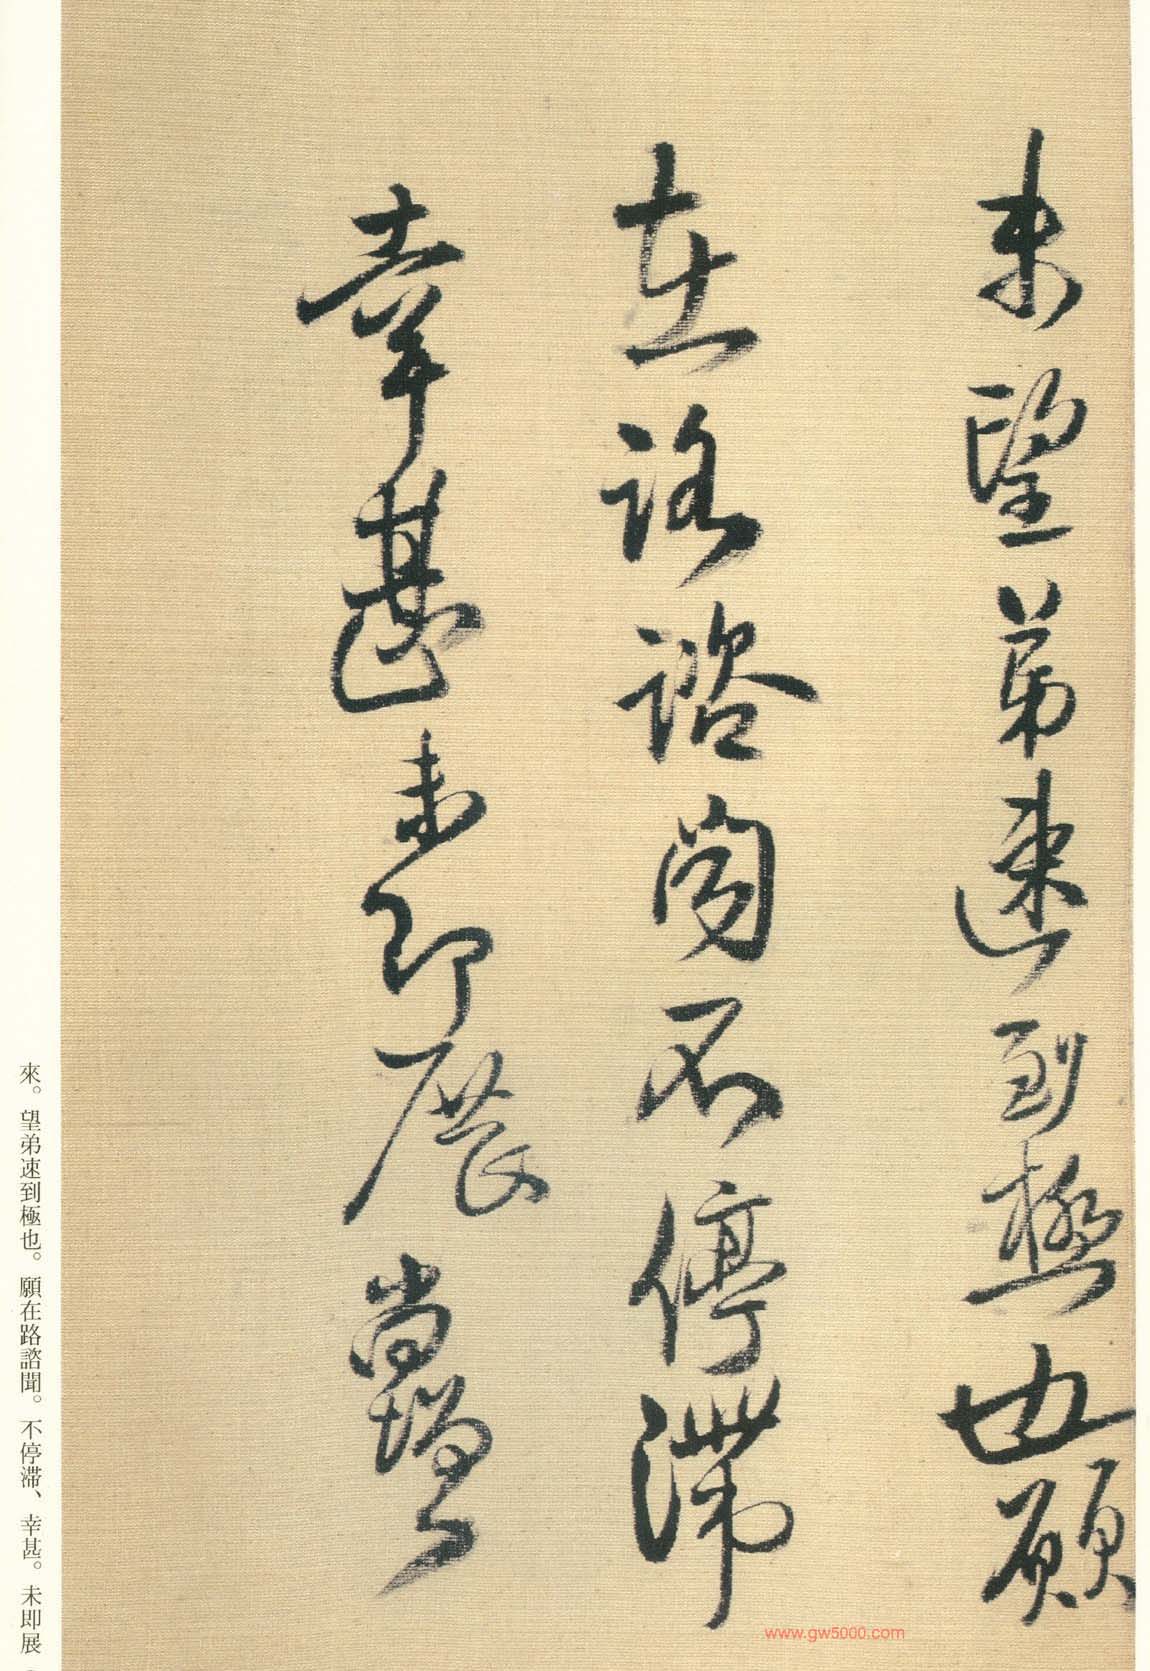 來望弟速到極也願
在路諮聞不停滯
幸甚未即展尚增
來。望弟速到極也。願在路諮聞。不停滯、幸甚。未即展
www.gw5000.com